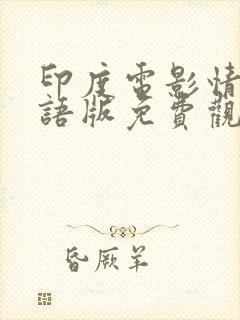 印度電影情
語版免費觀
昏厥羊